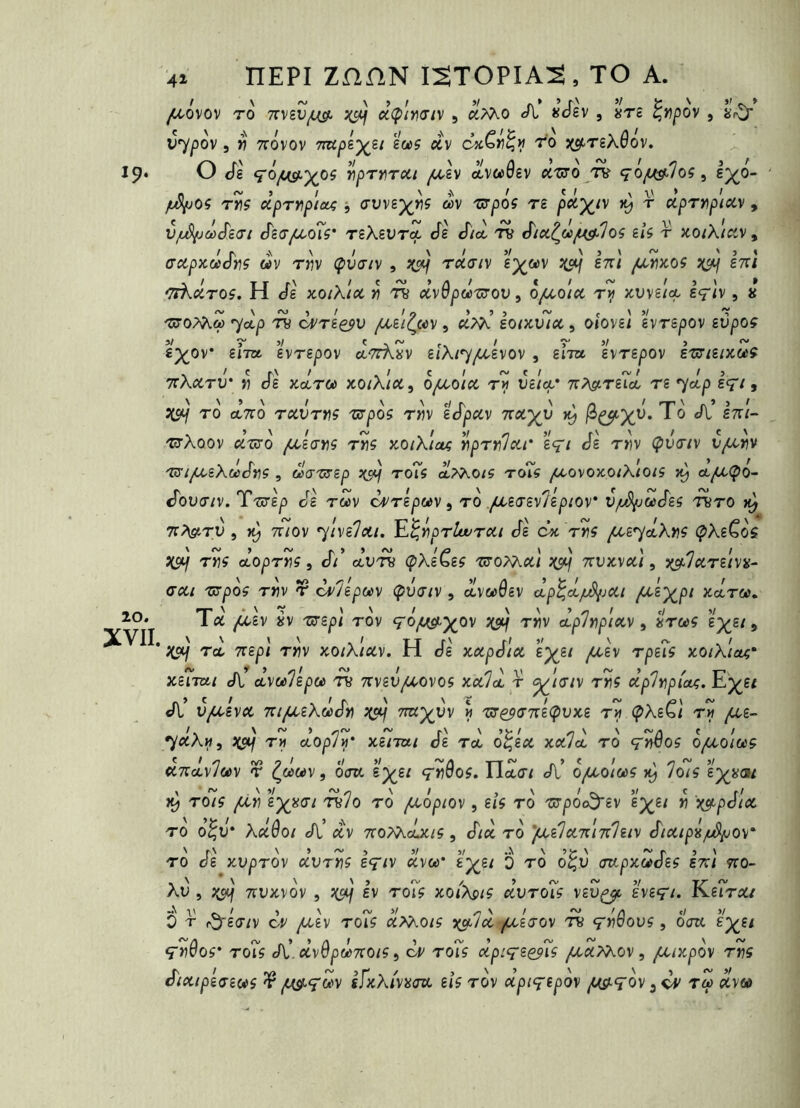 42 ΠΕΡΙ ΖΩΩΝ ΙΣΤΟΡΙΑΣ, ΤΟ Α.
μόνον τὸ πνεῦμα καὶ ἀφίησιν, ἄλλο δ' οὐδὲν, οὔτε ξηρὸν, οὔθ'
ὑγρὸν, ἢ πόνον παρέχει ἕως ἂν ἐκβήξῃ τὸ κατελθόν.
19. Ὁ δὲ στόμαχος ἤρτηται μὲν ἄνωθεν ἀπὸ τοῦ στόματος, ἐχό-
μενος τῆς ἀρτηρίας, συνεχὴς ὢν πρός τε ῥάχιν καὶ τὴν ἀρτηρίαν,
ὑμενώδεσι δεσμοῖς· τελευτᾷ δὲ διὰ τοῦ διαζώματος εἰς τὴν κοιλίαν,
σαρκώδης ὢν τὴν φύσιν, καὶ τάσιν ἔχων καὶ ἐπὶ μῆκος καὶ ἐπὶ
πλάτος. Ἡ δὲ κοιλία ἡ τοῦ ἀνθρώπου, ὁμοία τῇ κυνείᾳ ἐστὶν, οὐ
πολλῷ γὰρ τοῦ ἐντέρου μείζων, ἀλλ' ἐοικυῖα, οἱονεὶ ἔντερον εὖρος
ἔχον· εἶτα ἔντερον ἁπλοῦν εἱλιγμένον, εἶτα ἔντερον ἐπιεικῶς
πλατύ· ἡ δὲ κάτω κοιλία, ὁμοία τῇ ὑείᾳ· πλατεῖά τε γάρ ἐστι,
καὶ τὸ ἀπὸ ταύτης πρὸς τὴν ἕδραν παχὺ καὶ βραχύ. Τὸ δ' ἐπί-
πλοον ἀπὸ μέσης τῆς κοιλίας ἤρτηται· ἔστι δὲ τὴν φύσιν ὑμὴν
πιμελώδης, ὥσπερ καὶ τοῖς ἄλλοις τοῖς μονοκοιλίοις καὶ ἀμφό-
δουσιν. Ὑπὲρ δὲ τῶν ἐντέρων, τὸ μεσεντέριον· ὑμενῶδες τοῦτο καὶ
πλατὺ, καὶ πῖον γίνεται. Ἐξήρτηνται δὲ ἐκ τῆς μεγάλης φλεβὸς
καὶ τῆς ἀορτῆς, δι' αὐτοῦ φλέβες πολλαὶ καὶ πυκναὶ, κατατείνου-
σαι πρὸς τὴν τῶν ἐντέρων φύσιν, ἄνωθεν ἀρξάμεναι μέχρι κάτω.
20. Τὰ μὲν οὖν περὶ τὸν στόμαχον καὶ τὴν ἀρτηρίαν, οὕτως ἔχει,
XVII. καὶ τὰ περὶ τὴν κοιλίαν. Ἡ δὲ καρδία ἔχει μὲν τρεῖς κοιλίας·
κεῖται δ' ἀνωτέρω τοῦ πνεύμονος κατὰ τὴν σχίσιν τῆς ἀρτηρίας. Ἔχει
δ' ὑμένα πιμελώδη καὶ παχὺν ᾗ προσπέφυκε τῇ φλεβὶ τῇ με-
γάλῃ, καὶ τῇ ἀορτῇ· κεῖται δὲ τὰ ὀξέα κατὰ τὸ στῆθος ὁμοίως
ἁπάντων τῶν ζώων, ὅσα ἔχει στῆθος. Πᾶσι δ' ὁμοίως καὶ τοῖς ἔχουσι
καὶ τοῖς μὴ ἔχουσι τοῦτο τὸ μόριον, εἰς τὸ πρόσθεν ἔχει ἡ καρδία
τὸ ὀξύ· λάθοι δ' ἂν πολλάκις, διὰ τὸ μεταπίπτειν διαιρουμένων·
τὸ δὲ κυρτὸν αὐτῆς ἐστιν ἄνω· ἔχει δὲ τὸ ὀξὺ σαρκῶδες ἐπὶ πο-
λὺ, καὶ πυκνὸν, καὶ ἐν τοῖς κοίλοις αὐτοῖς νεῦρα ἔνεστι. Κεῖται
δὲ τὴν θέσιν ἐν μὲν τοῖς ἄλλοις κατὰ μέσον τοῦ στήθους, ὅσα ἔχει
στῆθος· τοῖς δ' ἀνθρώποις, ἐν τοῖς ἀριστεροῖς μᾶλλον, μικρὸν τῆς
διαιρέσεως τῶν μαστῶν ἐγκλίνουσα εἰς τὸν ἀριστερὸν μαστὸν, ἐν τῷ ἄνω